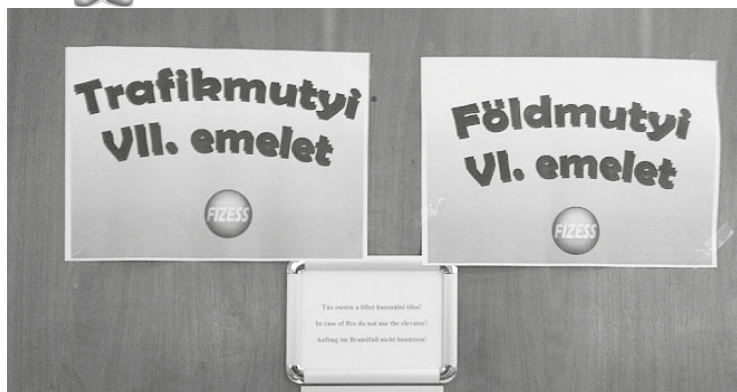 Trafikmutyi
VII. emelet
FIZESS
Földmutyi
VI. emelet
FIZESS
Tűz esetén a liftet használni tilos!
In case of fire do not use the elevator!
Aufzug im Brandfall nicht benützen!